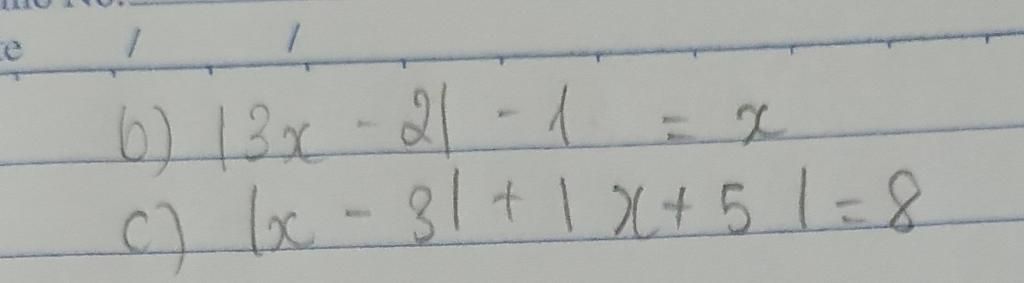 e / /
b) |3x - 2| - 1 = x
c) |x - 3| + | x + 5 | = 8